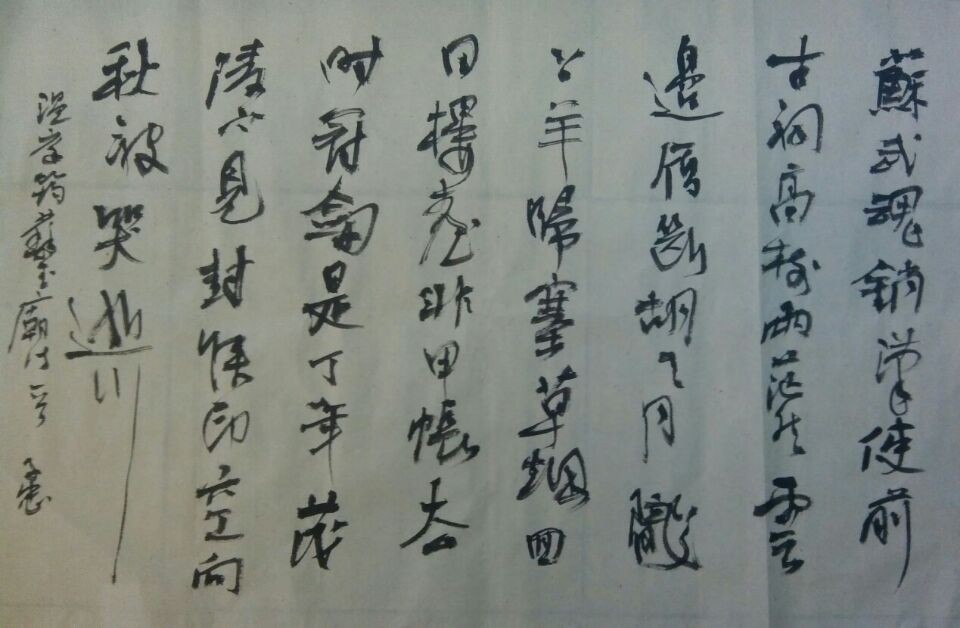 蘇武魂銷漢使前
古祠高樹兩茫然雲
邊雁斷胡天月隴
上羊歸塞草烟回
日樓臺非甲帳去
时冠劍是丁年茂
陵不見封侯印空向
秋波哭逝川
温庭筠蘇武廟